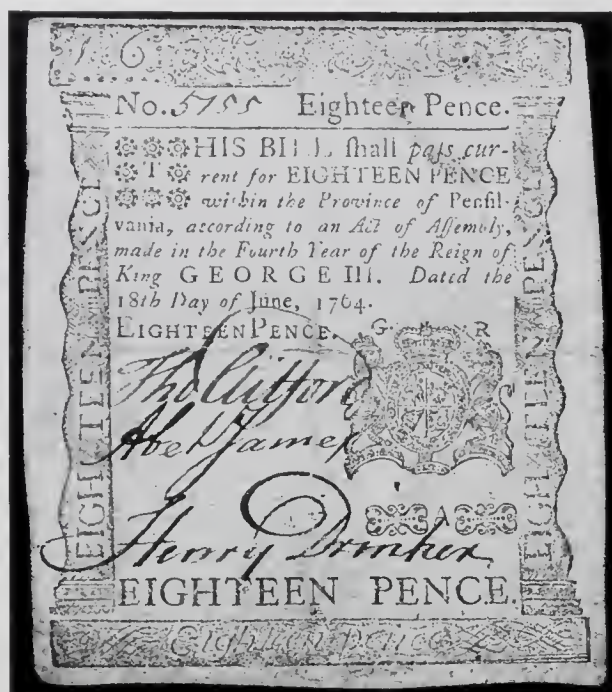 1 6
No. 5755 Eighteen Pence.
THIS BILL ſhall paſs cur-
rent for EIGHTEEN PENCE
within the Province of Penſil-
vania, according to an Act of Aſſembly,
made in the Fourth Year of the Reign of
King GEORGE III. Dated the
18th Day of June, 1764.
EIGHTEEN PENCE. G R
Tho Clifford
Abel James
A
Henry Drinker
EIGHTEEN PENCE.
Eighteen Pence
EIGHTEEN PENCE
EIGHTEEN PENCE